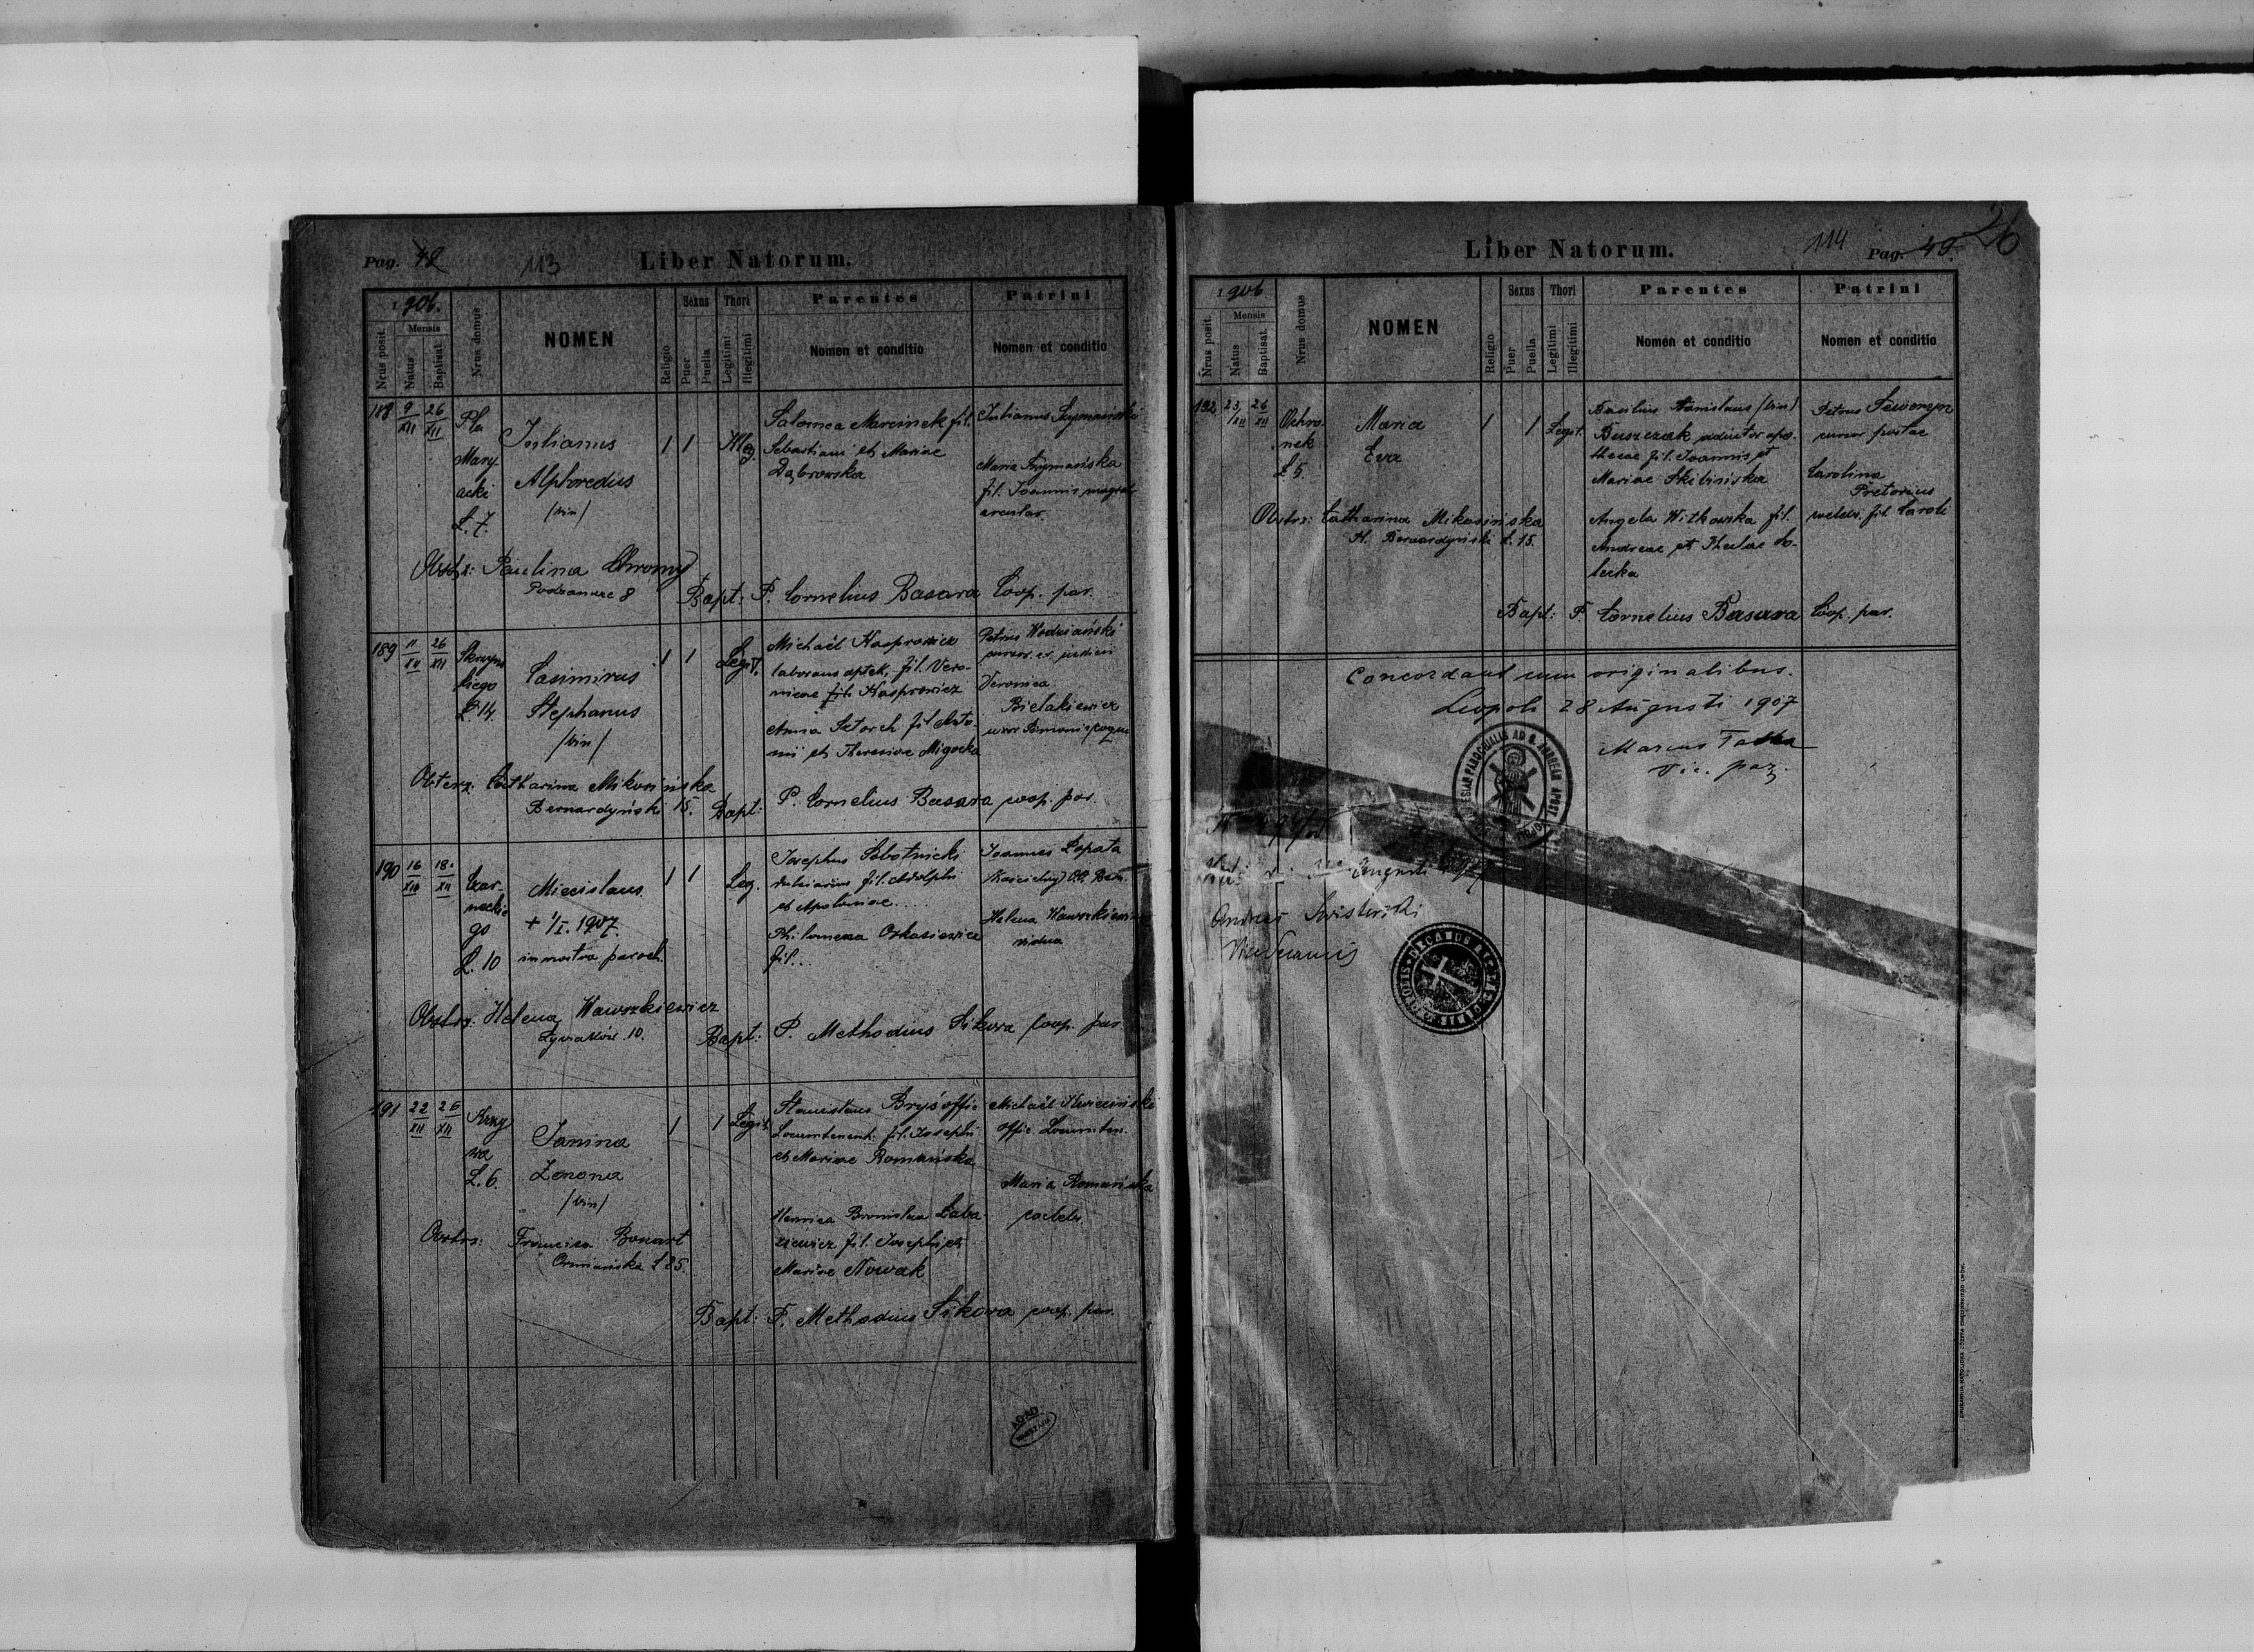 Pag. 48
113
Liber Natorum.
1906.
Nrus posit.
Mensis
Natus
Baptisat.
Nrus domus
NOMEN
Religio
Sexus
Puer
Puella
Thori
Legitimi
Illegitimi
Parentes
Nomen et conditio
Patrini
Nomen et conditio
188 9/XII 26/XII Pla Maryacki L. 7.
Julianus
Alphoredus
/bin/
1 1 Illeg.
Salomea Marcinek fil.
Sebastiani et Mariae
Dąbrowska
Julianus Szymański
Maria Szymańska
fil. Joannis magistr.
Obstr: Paulina Chromy
Podzamcze 8
Bapt: P. Cornelius Basara Coop. par.
189 11/XII 26/XII L. 14.
Casimirus
Stephanus
/bin/
1 1 Legit.
Michaël Kasprowicz
laborans aptek. fil. Vero-
nicae Kasprowicz
Anna fil. Anto-
nii et Theresiae Migocka
Petrus Wodziański
Veronica
Bielakiewicz
uxor Romani
Obstetr: Catharina Mikosińska
Bernardyński 15.
Bapt: P. Cornelius Basara coop. par.
190 16/XII 18/XII Czar-
neckie
go
L. 10
Miecislaus
+ 1/I. 1907.
in nostra paroch.
1 1 Leg.
Josephus Sobotnicki
fil. Adolphi
et Apoloniae
Philomena
fil...
Joannes Łopata
Helena Wawrzkiewicz
vidua
Obstr: Helena Wawrzkiewicz
10.
Bapt: P. Methodius Sikora Coop. par.
191 22/XII 26/XII Krzy
wa
L. 6.
Janina
Zenona
/bin/
1 1 Legit.
Stanislaus Bryś offic.
Locumtenent. fil. Josephi
et Mariae Romańska
Henrica Bronislava Łaba-
ziewicz fil. Josephi et
Mariae Nowak
Michaël Kwieciński
offic. Locumten.
Maria Romańska
caelebs
Obstr: Francisca Bonart
Ormiańska L 25.
Bapt: P. Methodius Sikora coop. par.
AGAD
WARSZAWA
Liber Natorum.
114
Pag. 49.
26
1906.
Nrus posit.
Mensis
Natus
Baptisat.
Nrus domus
NOMEN
Religio
Sexus
Puer
Puella
Thori
Legitimi
Illegitimi
Parentes
Nomen et conditio
Patrini
Nomen et conditio
192 23/XII 26/XII Ochro-
nek
L 5.
Maria
Eva
1 1 Legit.
Basilius Stanislaus /bin/
Buszczak adiutor apo-
thecae fil. Joannis et
Mariae Skibińska
Angela Witkowska fil.
Andreae et Theclae So-
lecka
Petrus Seweryn
cursor postae
Carolina
Pretorius
caelebs. fil. Caroli
Obstr: Catharina Mikosińska
Pl. Bernardyński L. 15.
Bapt: P. Cornelius Basara Coop. par.
Concordant cum originalibus.
Leopoli 28 Augusti 1907
Marcus
Vic. par.
Augusti 1907
Andreas
Vicedecanus